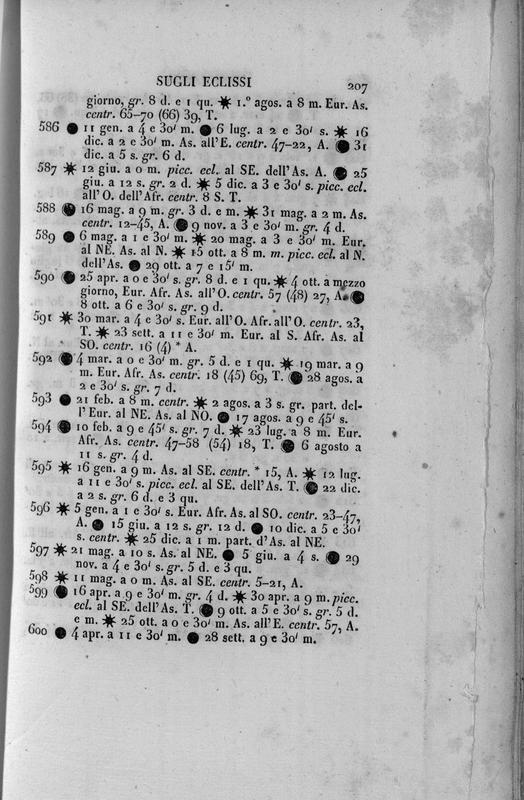 SUGLI ECLISSI 207
giorno, gr. 8 d. e 1 qu. ✷ 1.º agos. a 8 m. Eur. As.
centr. 65-70 (66) 39, T.
586 ● 11 gen. a 4 e 30' m. ● 6 lug. a 2 e 30' s. ✷ 16
dic. a 2 e 30' m. As. all'E. centr. 47-22, A. ● 31
dic. a 5 s. gr. 6 d.
587 ✷ 12 giu. a 0 m. picc. ecl. al SE. dell'As. A. ● 25
giu. a 12 s. gr. 2 d. ✷ 5 dic. a 3 e 30' s. picc. ecl.
all'O. dell'Afr. centr. 8 S. T.
588 ● 16 mag. a 9 m. gr. 3 d. e m. ✷ 31 mag. a 2 m. As.
centr. 12-45, A. ● 9 nov. a 3 e 30' m. gr. 4 d.
589 ● 6 mag. a 1 e 30' m. ✷ 20 mag. a 3 e 30' m. Eur.
al NE. As. al N. ✷ 15 ott. a 8 m. m. picc. ecl. al N.
dell'As. ● 29 ott. a 7 e 15' m.
590 ● 25 apr. a 0 e 30' s. gr. 8 d. e 1 qu. ✷ 4 ott. a mezzo
giorno, Eur. Afr. As. all'O. centr. 57 (48) 27, A. ●
8 ott. a 6 e 30' s. gr. 9 d.
591 ✷ 30 mar. a 4 e 30' s. Eur. all'O. Afr. all'O. centr. 23,
T. ✷ 23 sett. a 11 e 30' m. Eur. al S. Afr. As. al
SO. centr. 16 (4) * A.
592 ● 4 mar. a 0 e 30' m. gr. 5 d. e 1 qu. ✷ 19 mar. a 9
m. Eur. Afr. As. centr. 18 (45) 69, T. ● 28 agos. a
2 e 30' s. gr. 7 d.
593 ● 21 feb. a 8 m. centr. ✷ 2 agos. a 3 s. gr. part. del-
l'Eur. al NE. As. al NO. ● 17 agos. a 9 e 45' s.
594 ● 10 feb. a 9 e 45' s. gr. 7 d. ✷ 23 lug. a 8 m. Eur.
Afr. As. centr. 47-58 (54) 18, T. ● 6 agosto a
11 s. gr. 4 d.
595 ✷ 16 gen. a 9 m. As. al SE. centr. * 15, A. ✷ 12 lug.
a 11 e 30' s. picc. ecl. al SE. dell'As. T. ● 22 dic.
a 2 s. gr. 6 d. e 3 qu.
596 ✷ 5 gen. a 1 e 30' s. Eur. Afr. As. al SO. centr. 23-47,
A. ● 15 giu. a 12 s. gr. 12 d. ● 10 dic. a 5 e 30'
s. centr. ✷ 25 dic. a 1 m. part. d'As. al NE.
597 ✷ 21 mag. a 10 s. As. al NE. ● 5 giu. a 4 s. ● 29
nov. a 4 e 30' s. gr. 5 d. e 3 qu.
598 ✷ 11 mag. a 0 m. As. al SE. centr. 5-21, A.
599 ● 16 apr. a 9 e 30' m. gr. 4 d. ✷ 30 apr. a 9 m. picc.
ecl. al SE. dell'As. T. ● 9 ott. a 5 e 30' s. gr. 5 d.
e m. ✷ 25 ott. a 0 e 30' m. As. all'E. centr. 57, A.
600 ● 4 apr. a 11 e 30' m. ● 28 sett. a 9 e 30' m.